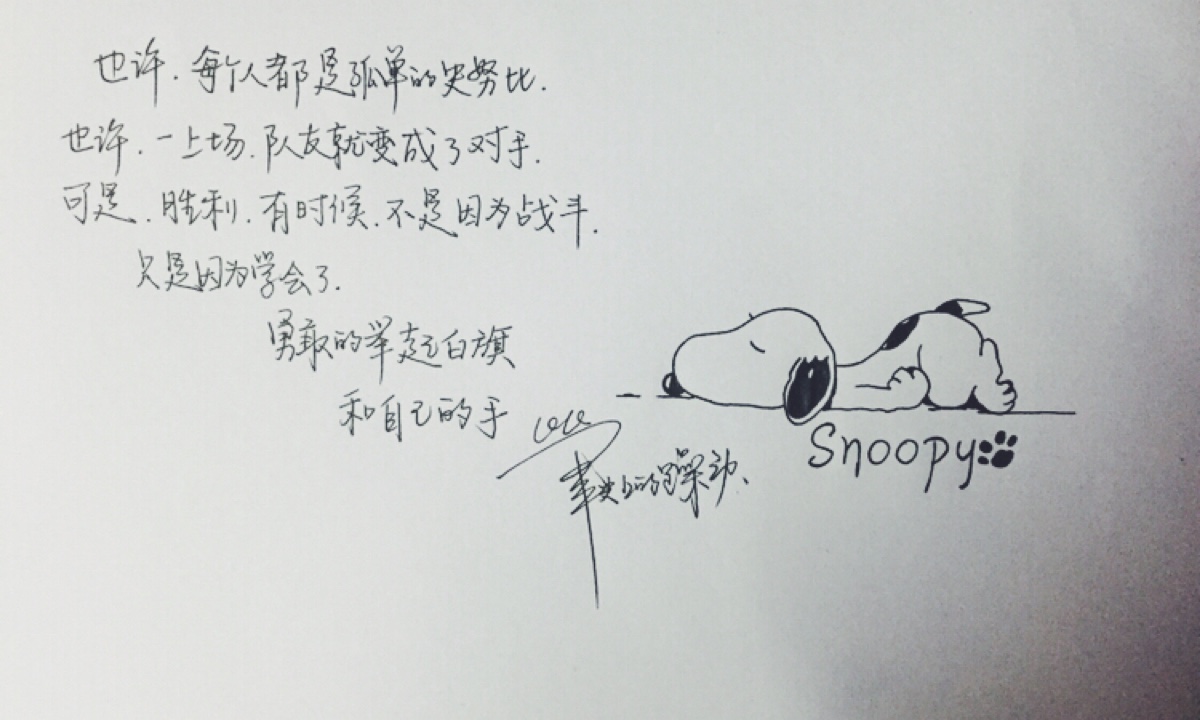 也许.每个人都是孤单的史努比.
也许.一上场.队友就变成了对手.
可是.胜利.有时候.不是因为战斗.
只是因为学会了.
勇敢的举起白旗
和自己的手
的躁动、
Snoopy